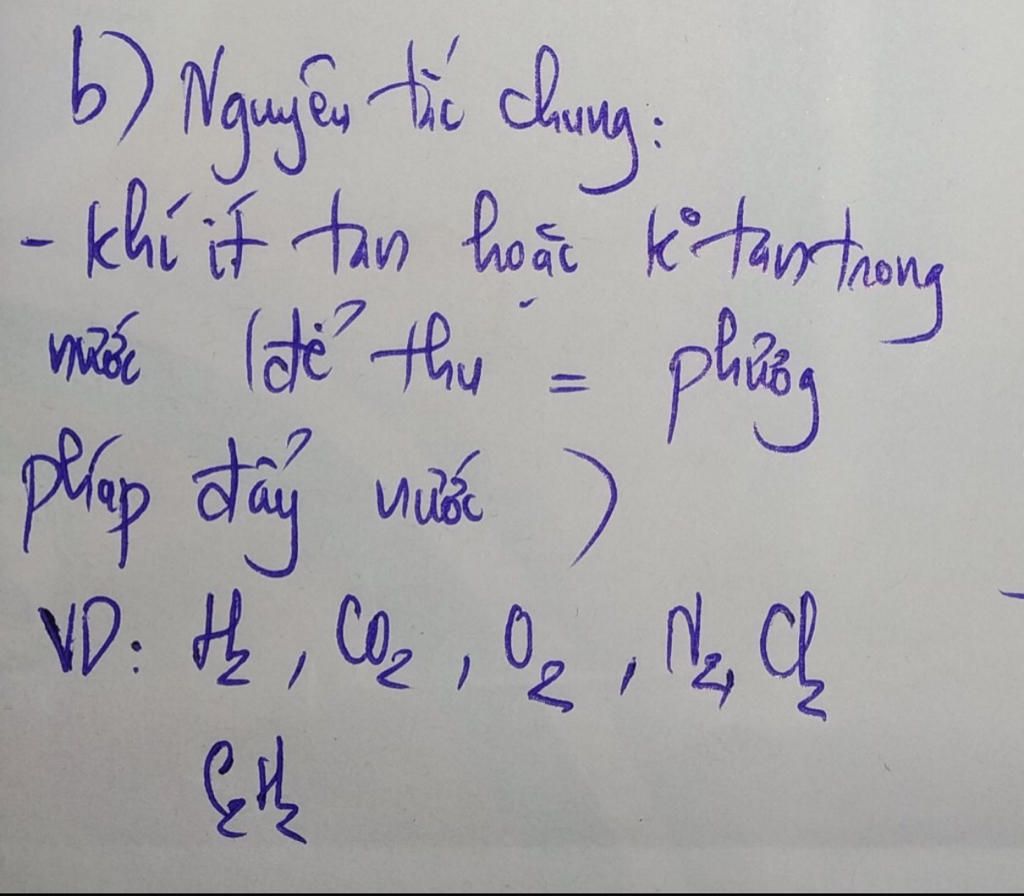 b) Nguyên tắc chung:
- khí ít tan hoặc k° tan trong
nước (để thu = phương
pháp đẩy nước )
VD: H₂ , CO₂ , O₂ , N₂, Cl₂
C₂H₂